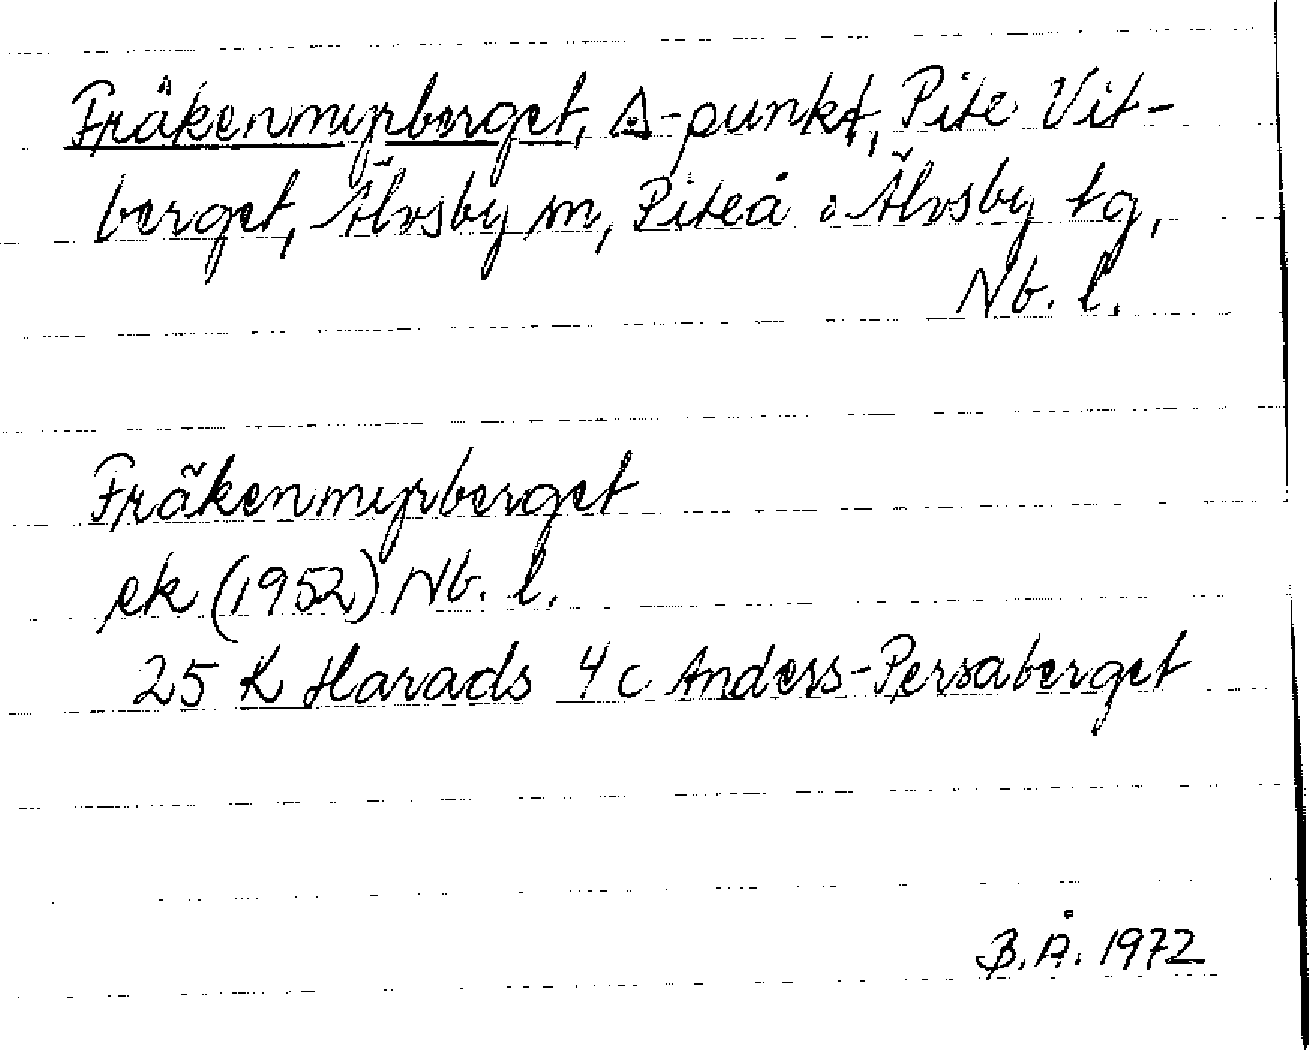 Fräkenmyrberget, ◬-punkt, Pite Vit-
berget, Älvsby m, Piteå o Älvsby tg,
Nb. l.
Fräkenmyrberget
ek (1952) Nb. l.
25 K Harads 4c Anders-Persaberget
B.Å. 1972